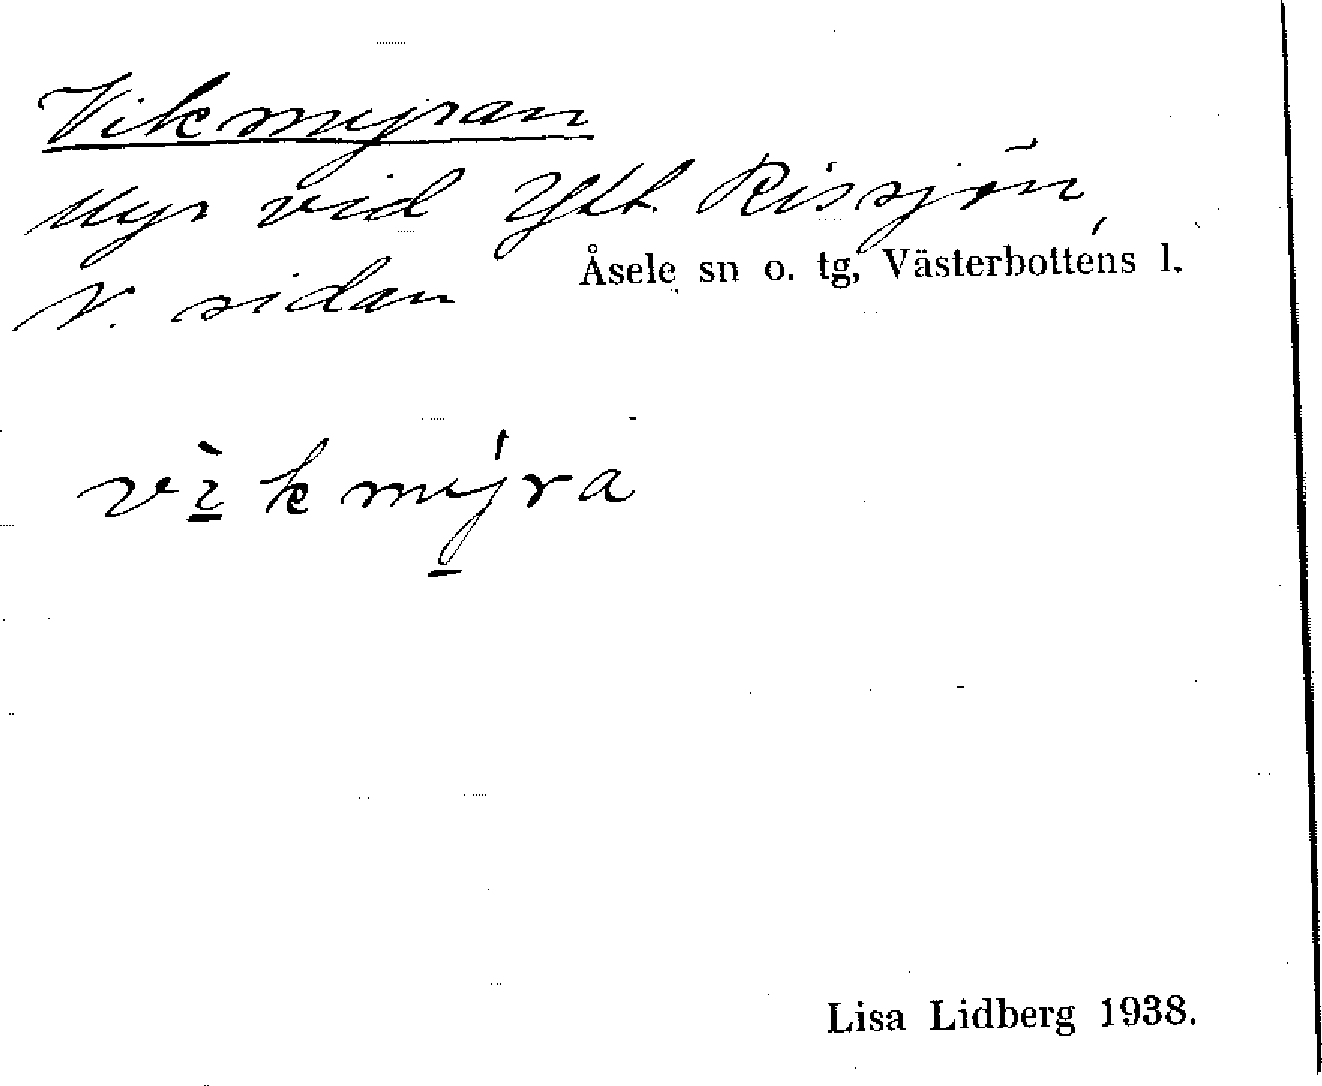 Vikmyran
Myr vid Ytt. Rissjön,
V. sidan
Åsele sn o. tg, Västerbottens l.
vı̲̀kmý̲ra
Lisa Lidberg 1938.